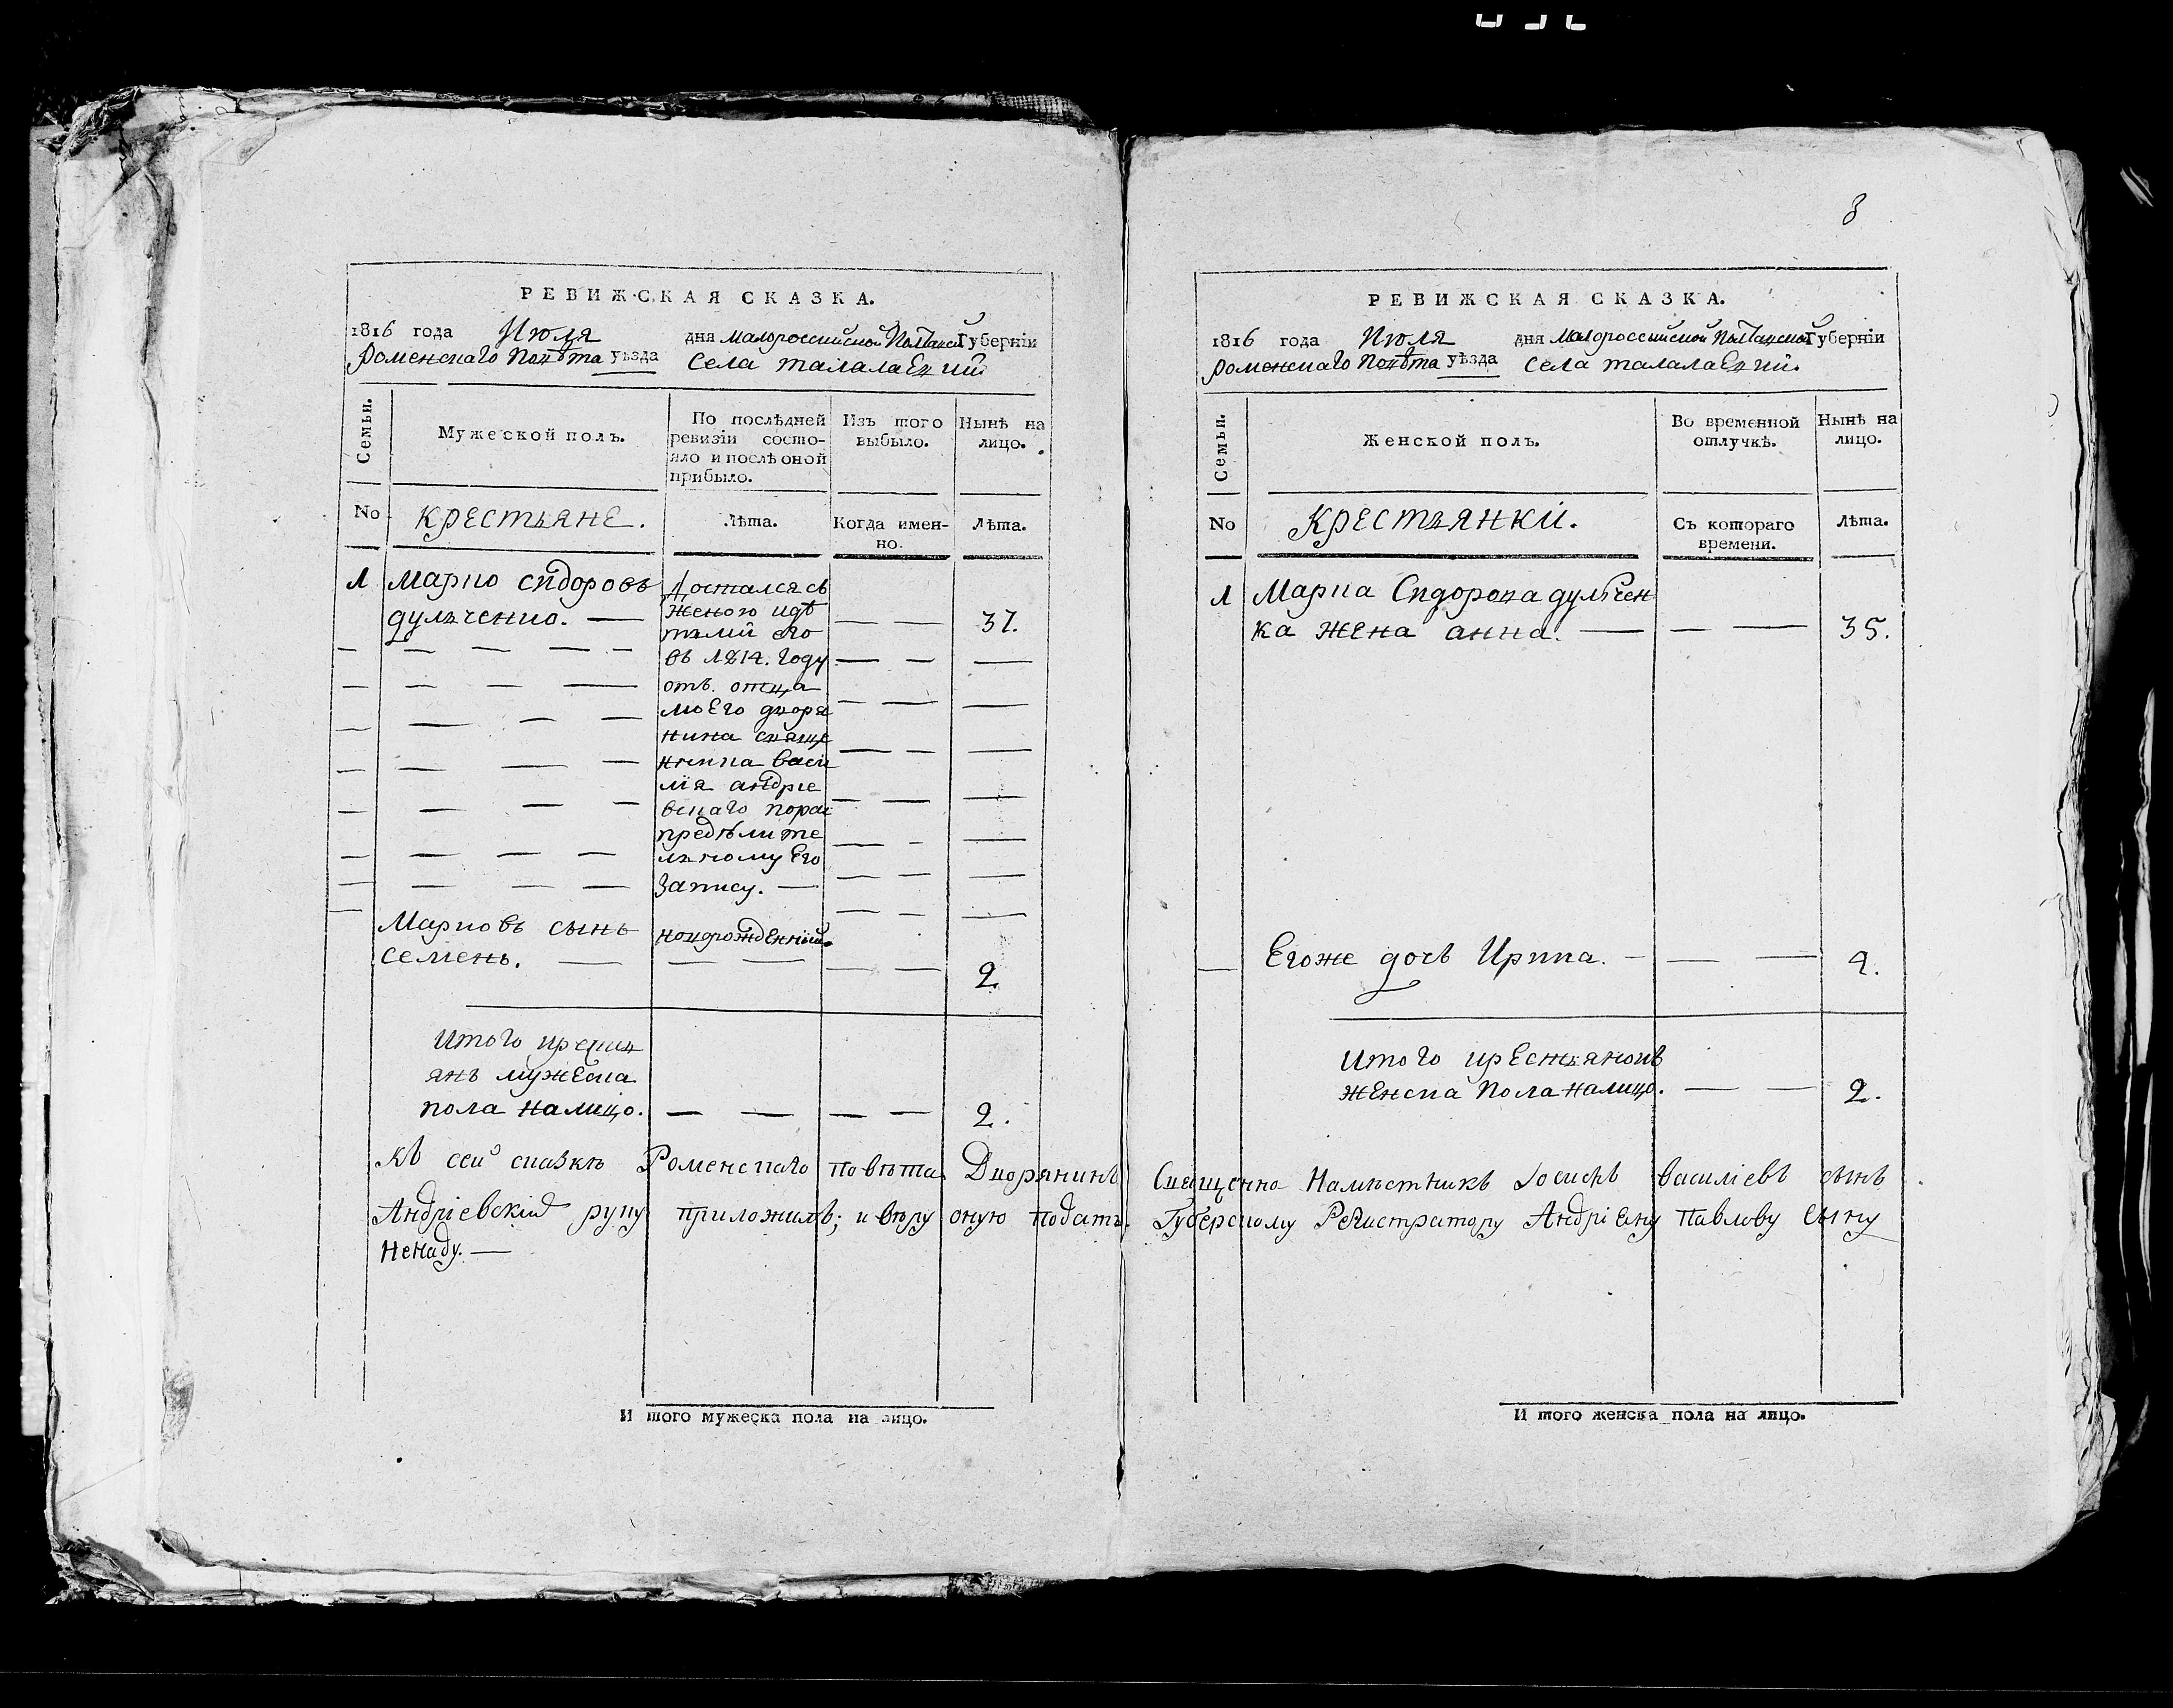 РЕВИЖСКАЯ СКАЗКА.
1816 года Июля дня малороссийской Полтавской Губерніи
Роменскаго Повѣта уѣзда Села талалаевки
Семьи.
Мужеской полъ.
По послѣдней ревизіи состо-
яло и послѣ оной
прибыло.
Изъ того выбыло.
Нынѣ на лицо.
No
КРЕСТЬЯНЕ.
Лѣта.
Когда имен-
но.
Лѣта.
1 Марко сидоровъ
дулченко.
Достался съ
женою идѣ
тьми его
въ 1814. году
отъ отца
моего дворя
нина свяще
нника васи
лія андріе
вскаго пораз
предѣлите
льному Его
Запису.
37.
Марковъ сынъ
семенъ.
новорожденній.
2
Итого крестья
янъ мужеска
пола налицо.
2.
8
РЕВИЖСКАЯ СКАЗКА.
1816 года Июля дня Малороссийской Полтавской Губерніи
Роменскаго Повѣта уѣзда Села талалаевки.
Семьи.
Женской полъ.
Во временной отлучкѣ.
Нынѣ на лицо.
No
КРЕСТЬЯНКИ.
Съ котораго
времени.
Лѣта.
1 Марка Сидорова дулчен
ка жена анна.
35.
Егоже дочь Ирина.
9.
Итого крестьянокъ
женска Пола налицо.
2.
Къ сей сказкѣ Роменскаго повѣта Дворянинъ Священно Намѣстникъ Іосифъ василіевъ сынъ
Андріевскій руку приложилъ; и вѣру оную подать. Губерскому Регистратору Андріеву Павлову сыну
Ненаду.
И того мужеска пола на лицо.
И того женска пола на лицо.